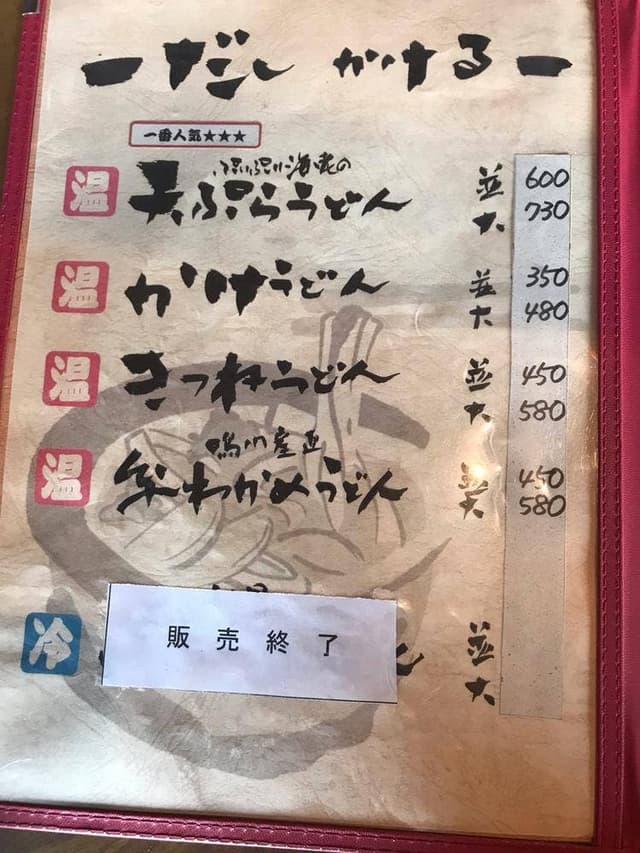 ー だし かける ー
一番人気★★★
ぷりぷり海老の
温 天ぷらうどん 並 600
大 730
温 かけうどん 並 350
大 480
温 きつねうどん 並 450
大 580
鳴門産
温 わかめうどん 並 450
大 580
冷 販売終了 並
大